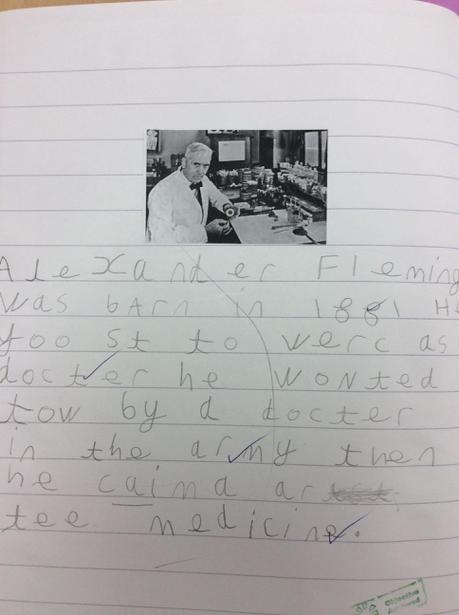 Alexander Fleming
was barn in 1881 He
yoo st to werc as
docter he wonted
tow by a docter
in the army then
he caima ar
tee medicine.
Objective
Achieved